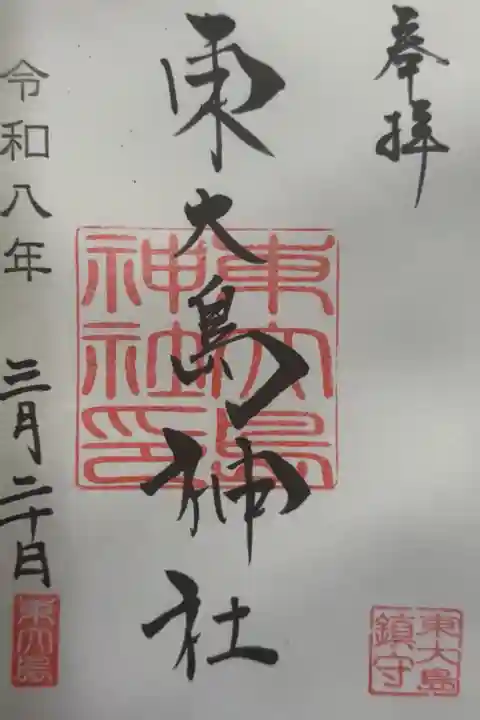 奉拝
東大島神社
東大島神社印
令和八年 三月二十日
東大島
東大島鎮守